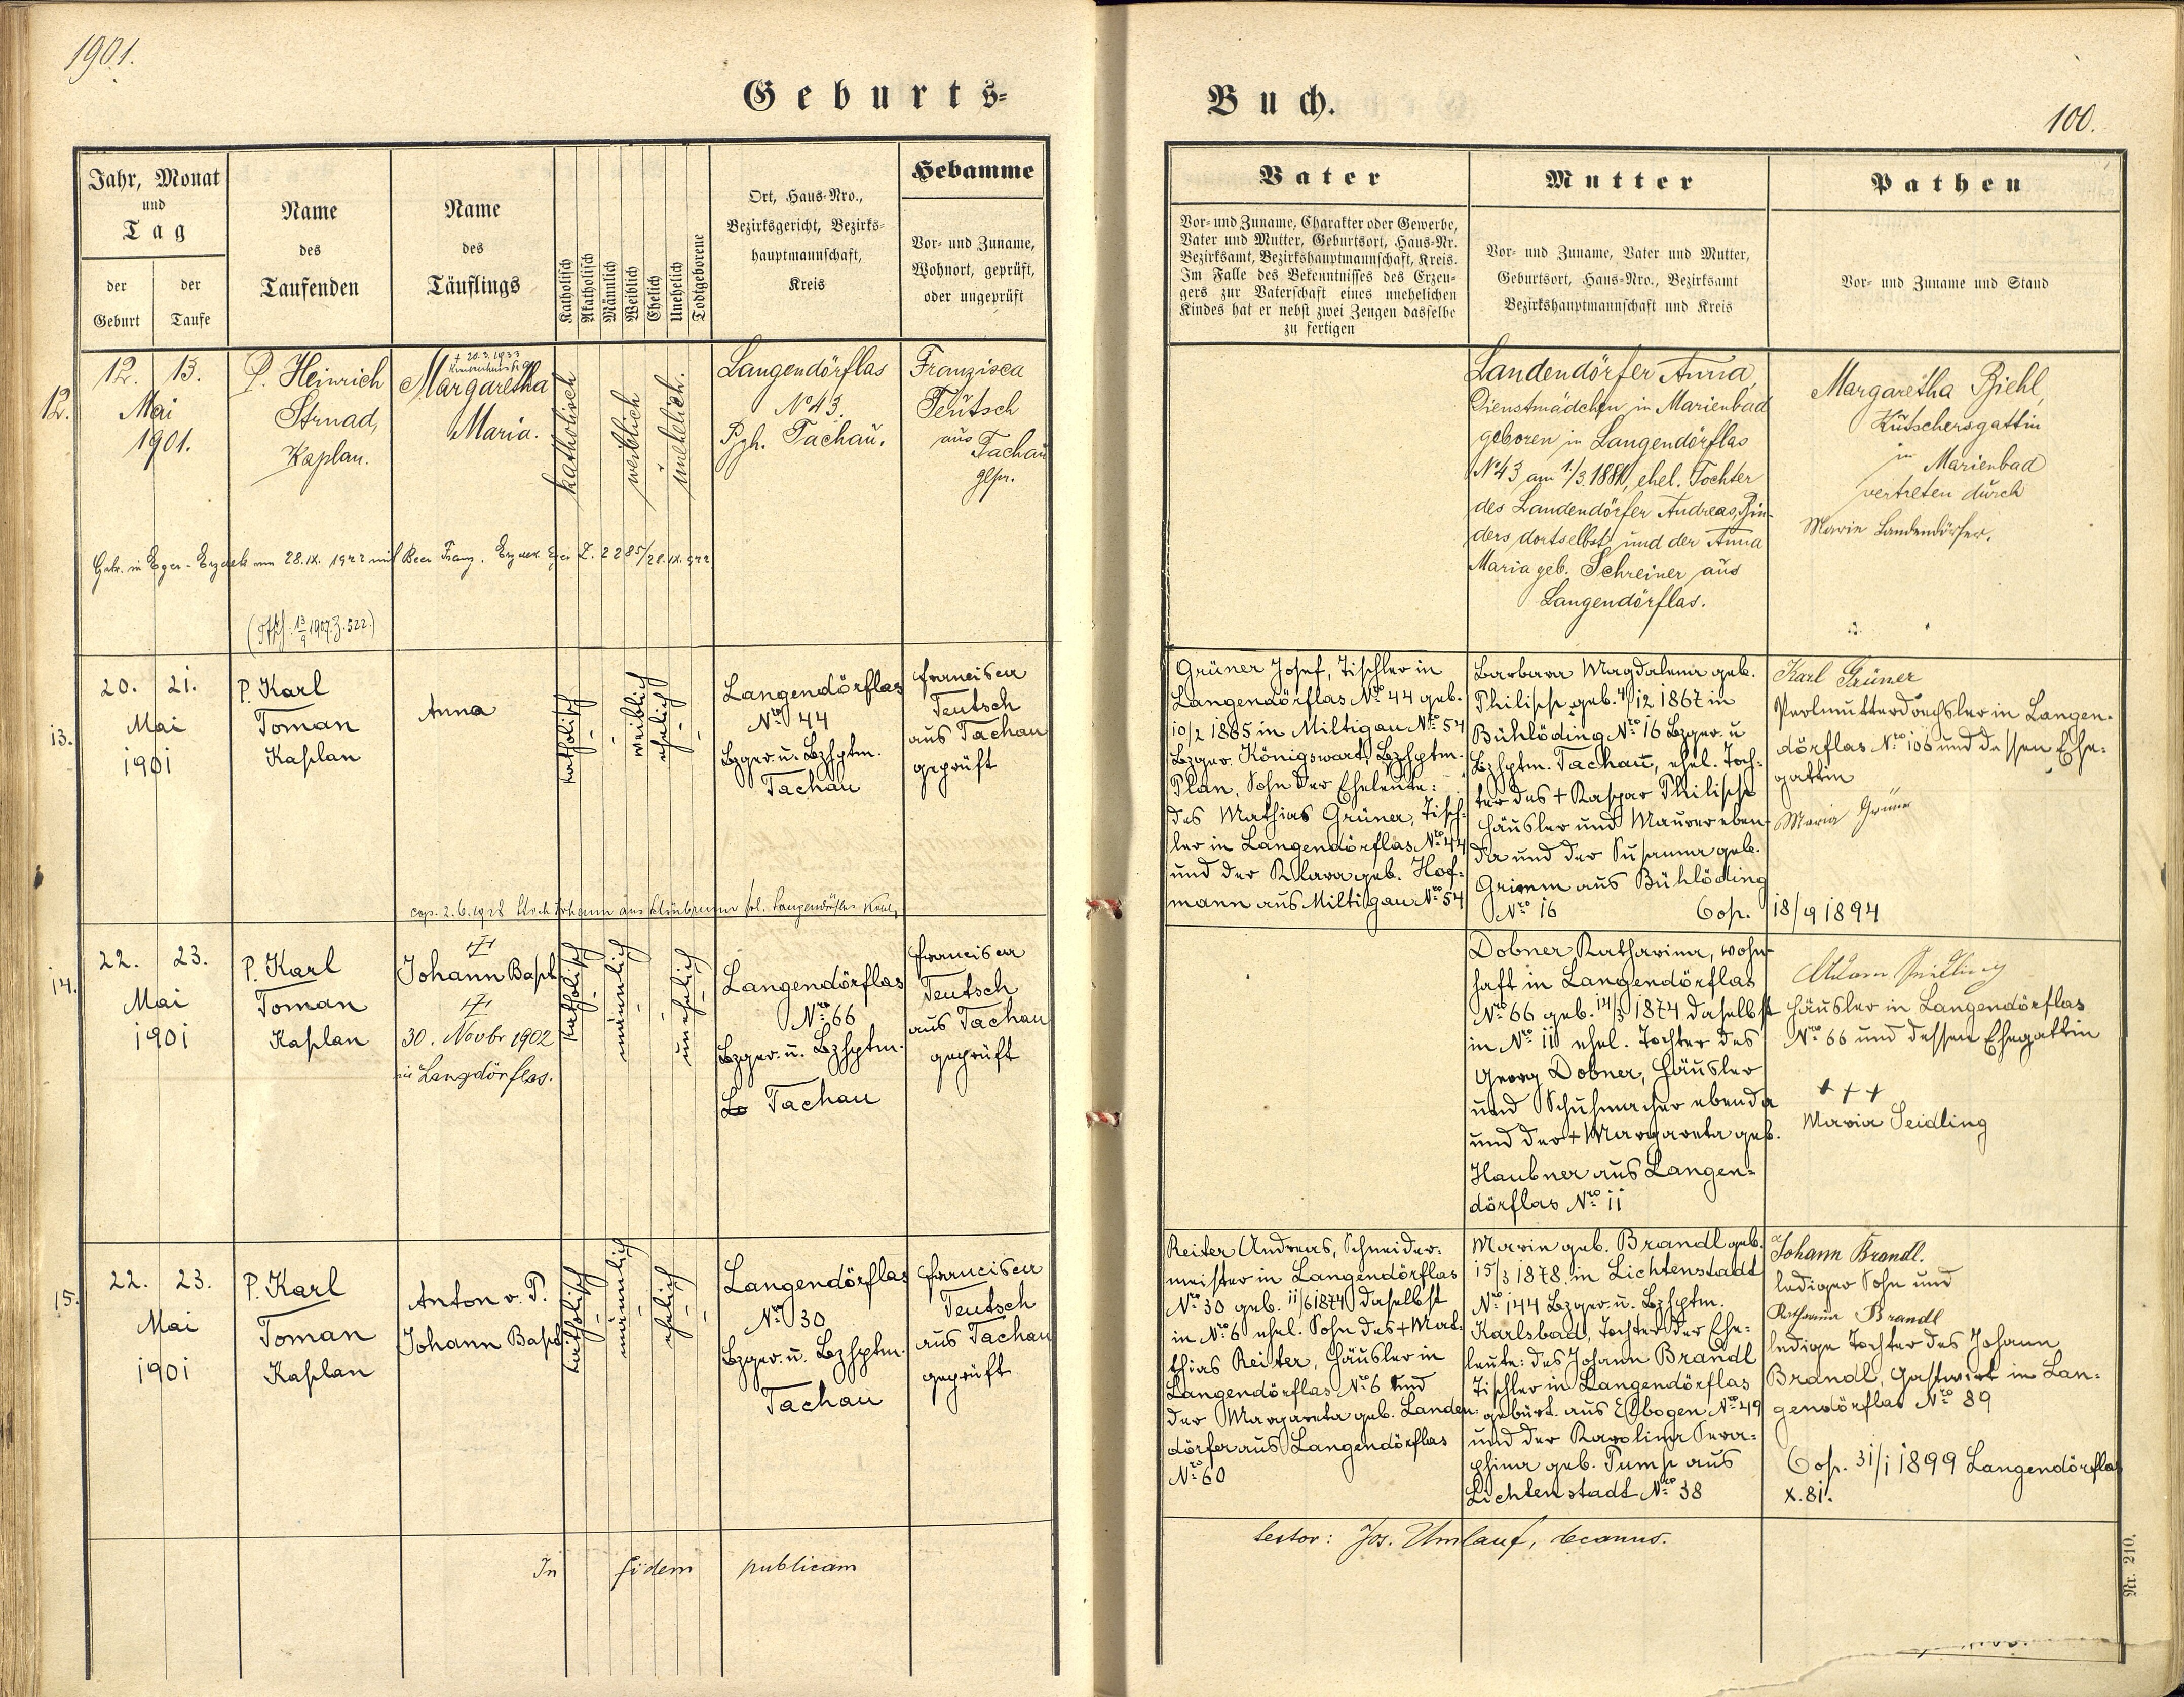 1901.
Geburts-
Buch.
100.
Jahr, Monat
und
Tag
der
Geburt
der
Taufe
Name
des
Taufenden
Name
des
Täuflings
Katholisch
Akatholisch
Männlich
Weiblich
Ehelich
Unehelich
Todtgeborene
Ort, Haus-Nro.,
Bezirksgericht, Bezirks-
hauptmannschaft,
Kreis
Hebamme
Vor- und Zuname,
Wohnort, geprüft,
oder ungeprüft
Vater
Vor- und Zuname, Charakter oder Gewerbe,
Vater und Mutter, Geburtsort, Haus-Nr.
Bezirksamt, Bezirkshauptmannschaft, Kreis.
Im Falle des Bekenntnisses des Erzeu-
gers zur Vaterschaft eines unehelichen
Kindes hat er nebst zwei Zeugen dasselbe
zu fertigen
Mutter
Vor- und Zuname, Vater und Mutter,
Geburtsort, Haus-Nro., Bezirksamt
Bezirkshauptmannschaft und Kreis
Pathen
Vor- und Zuname und Stand
12.
12. 13.
Mai
1901.
P. Heinrich
Strnad,
Kaplan.
† 20.3.1933
Margaretha
Maria.
katholisch
weiblich
unehelich.
Langendörflas
No 43.
Bzh. Tachau.
Franzisca
Teutsch
aus
Tachau
gepr.
Landendörfer Anna,
Dienstmädchen in Marienbad
geboren in Langendörflas
No 43 am 1./3. 1881, ehel. Tochter
des Landendörfer Andreas, Bin-
ders dortselbst und der Anna
Maria geb. Schreiner aus
Langendörflas.
Margaretha Biehl,
Kutschersgattin
in Marienbad
vertreten durch
Marie Landendörfer.
Getr. in Eger - Erzdek am 28.IX. 1922 mit Beer Franz. Erzdek. Eger Z. 2285/28.IX.922
1907. Z. 522.)
13.
20. 21.
Mai
1901
P. Karl
Toman
Kaplan
Anna
katholisch
weiblich
ehelich
Langendörflas
Nro 44
Bzger. u. Bzhptm.
Tachau
Francisca
Teutsch
aus Tachau
geprüft
Grüner Josef, Tischler in
Langendörflas Nro 44 geb.
10/2 1865 in Miltigau Nro 54
Bzger. Königswart, Bzhptm.
Plan, Sohn der Eheleute:
des Mathias Grüner, Tisch-
ler in Langendörflas Nro 44
und der Klara geb. Hof-
mann aus Miltigau Nro 54
Barbara Magdalena geb.
Philipp geb. 4/12 1867 in
Bühlöding Nro 16 Bzger. u
Bzhptm. Tachau, ehel. Toch-
ter des + Kaspar Philipp
Häusler und Maurer eben-
da und der Susanna geb.
Grimm aus Bühlöding
Nro 16 Cop. 18/9 1894
Karl Grüner
Perlmutterdrechsler in Langen-
dörflas Nro 106 und dessen Ehe-
gattin
Maria Grüner
cop. 2.6.1928
14.
22. 23.
Mai
1901
P. Karl
Toman
Kaplan
Johann Bapt
30. Novbr 1902
in Langdörflas.
katholisch
männlich
unehelich
Langendörflas
Nro 66
Bzger. u. Bzhptm.
Tachau
Francisca
Teutsch
aus Tachau
geprüft
Dobner Katharina, wohn-
haft in Langendörflas
Nro 66 geb. 14/3 1874 daselbst
in Nro 11 ehel. Tochter des
Georg Dobner, Häusler
und Schuhmacher ebenda
und der + Margareta geb.
Haubner aus Langen-
dörflas Nro 11
Adam Seidling
Häusler in Langendörflas
Nro 66 und dessen Ehegattin
+ + +
Maria Seidling
15.
22. 23.
Mai
1901
P. Karl
Toman
Kaplan
Anton v. P.
Johann Bapt
katholisch
männlich
ehelich
Langendörflas
Nro 30
Bzger. u. Bzhptm.
Tachau
Francisca
Teutsch
aus Tachau
geprüft
Reiter Andreas, Schneider-
meister in Langendörflas
Nro 30 geb. 11/6 1874 daselbst
in Nro 6 ehel. Sohn des + Mat-
thias Reiter, Häusler in
Langendörflas Nro 6 und
der Margareta geb. Landen-
dörfer aus Langendörflas
Nro 60
Marie geb. Brandl geb.
15/3 1878 in Lichtenstadt
Nro 144 Bzger. u. Bzhptm.
Karlsbad, Tochter der Ehe-
leute: des Johann Brandl
Tischler in Langendörflas
gebürt. aus Elbogen Nro 49
und der Karolina Sera-
phina geb. Pump aus
Lichtenstadt Nro 38
Johann Brandl.
lediger Sohn und
Katharina Brandl
ledige Tochter des Johann
Brandl, Gastwirt in Lan-
gendörflas Nro 89
Cop. 31/1 1899 Langendörflas
X. 81.
In fidem publicam
testor: Jos. Umlauf, decanus.
Nr. 210.